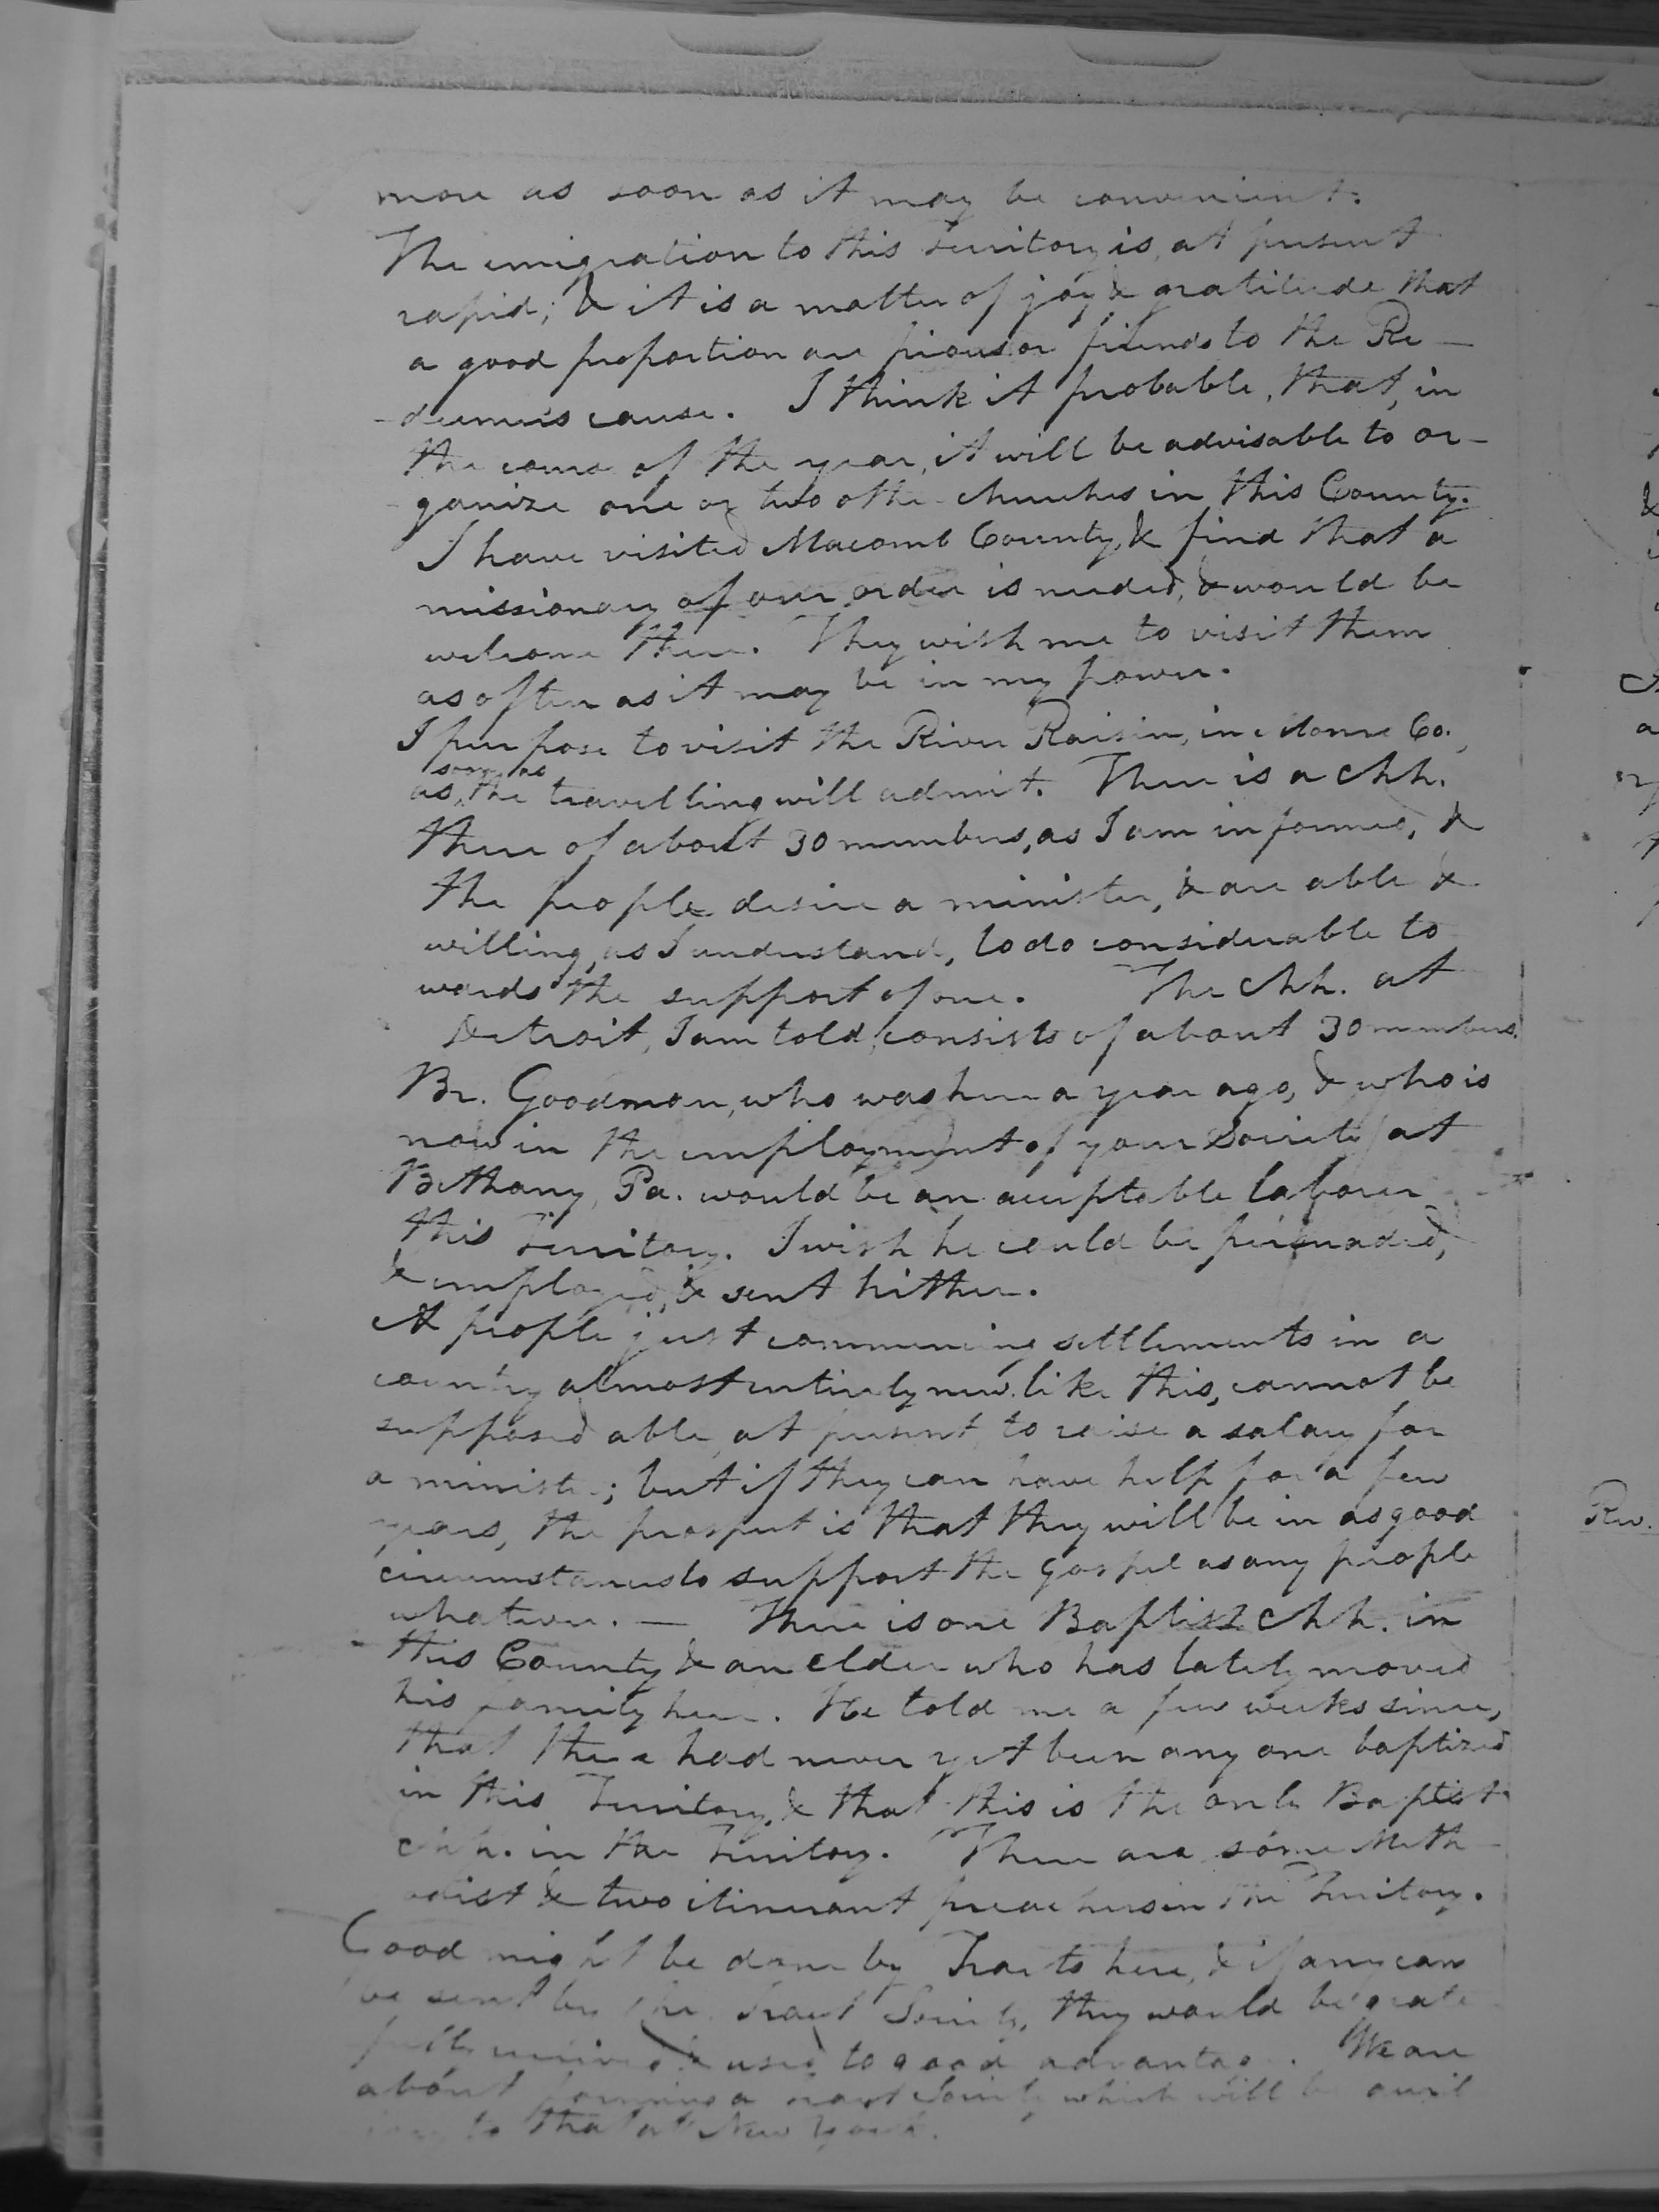 more as soon as it may be convenient.
The emigration to this Territory is, at present
rapid; & it is a matter of joy & gratitude that
a good proportion are pious or friends to the Re-
-deemer's cause. I think it probable, that, in
the course of the year, it will be advisable to or-
-ganize one or two other churches in this County.
I have visited Macomb County, & find that a
missionary of our order is needed, & would be
welcome there. They wish me to visit them
as often as it may be in my power.
I purpose to visit the River Raisin, in Monroe Co.,
as soon as the travelling will admit. There is a chh.
there of about 30 members, as I am informed, &
the people desire a minister, & are able &
willing, as I understand, to do considerable to
wards the support of one. The chh. at
Detroit, I am told, consists of about 30 members.
Br. Goodman, who was here a year ago, & who is
now in the employment of your Society at
Bethany, Pa. would be an acceptable laborer
this Territory. I wish he could be persuaded,
& employed, & sent hither.
A people just commencing settlements in a
country almost entirely new like this, cannot be
supposed able, at present, to raise a salary for
a minister; but if they can have help for a few
years, the prospect is that they will be in as good
circumstances to support the gospel as any people
whatever. — There is one Baptist chh. in
this County & an elder who has lately moved
his family here. He told me a few weeks since,
that there had never yet been any one baptized
in this Territory, & that this is the only Baptist
chh. in the Territory. There are some Meth
odist & two itinerant preachers in the Territory.
Good might be done by Tracts here, & if any can
be sent by the Tract Society, they would be grate
fully received & used to good advantage. We are
about forming a Tract Society which will be auxil
iary to that at New York.
Rev.